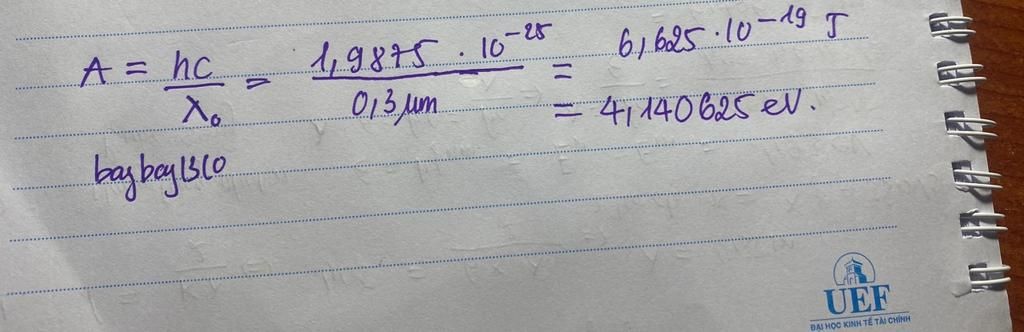 A = hc / λ₀ = 1,9875 . 10⁻²⁵ / 0,3 μm = 6,625 . 10⁻¹⁹ J
= 4,140625 eV.
bayboy1310
UEF
ĐẠI HỌC KINH TẾ TÀI CHÍNH